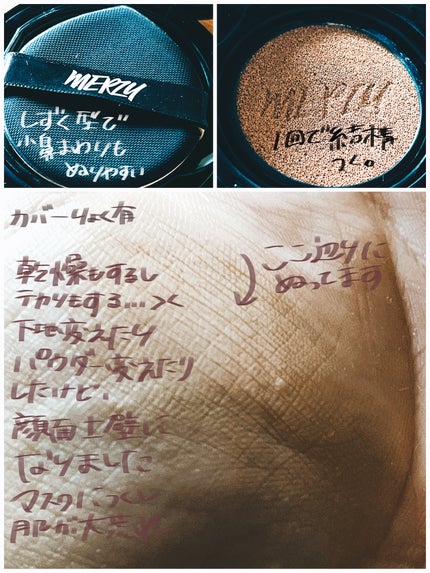 MERZY
しずく型で
小鼻まわりも
ぬりやすい
MERZY
1回で結構
つく。
カバーりょく有
ここ辺りに
ぬってます
乾燥もするし
テカりもする…><
下地変えたり
パウダー変えたり
したけど、
顔面土壁に
なりました
マスクにつくし
肌が大荒